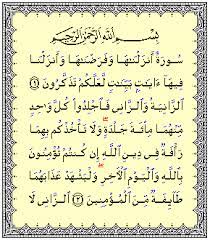 بِسْمِ ٱللَّهِ ٱلرَّحْمَٰنِ ٱلرَّحِيمِ
سُورَةٌ أَنزَلْنَٰهَا وَفَرَضْنَٰهَا وَأَنزَلْنَا
فِيهَآ ءَايَٰتٍۭ بَيِّنَٰتٍ لَّعَلَّكُمْ تَذَكَّرُونَ ١
ٱلزَّانِيَةُ وَٱلزَّانِى فَٱجْلِدُوا۟ كُلَّ وَٰحِدٍ
مِّنْهُمَا مِا۟ئَةَ جَلْدَةٍ وَلَا تَأْخُذْكُم بِهِمَا
رَأْفَةٌ فِى دِينِ ٱللَّهِ إِن كُنتُمْ تُؤْمِنُونَ
بِٱللَّهِ وَٱلْيَوْمِ ٱلْءَاخِرِ وَلْيَشْهَدْ عَذَابَهُمَا
طَآئِفَةٌ مِّنَ ٱلْمُؤْمِنِينَ ٢ ٱلزَّانِى لَا